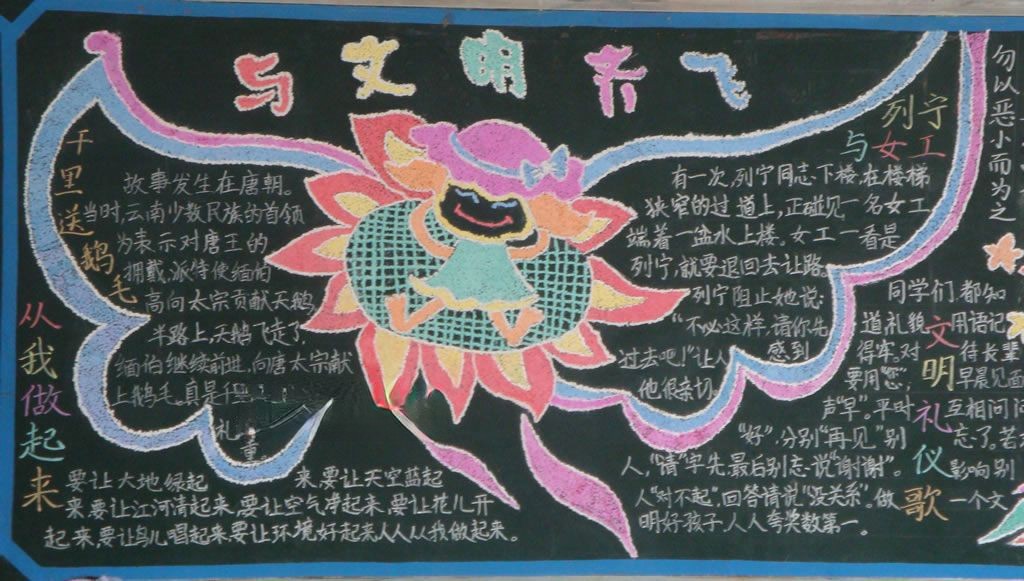 与文明齐飞
千里送鹅毛
故事发生在唐朝。
当时,云南少数民族的首领
为表示对唐王的
拥戴,派特使缅伯
高向太宗贡献天鹅
半路上,天鹅飞走了
缅伯继续前进,向唐太宗献
上鹅毛。真是千里
礼
从我做起来
要让大地绿起
来,要让天空蓝起
来要让江河清起来,要让空气净起来,要让花儿开
起来,要让鸟儿唱起来要让环境好起来人人从我做起来。
列宁
与女工
有一次,列宁同志下楼,在楼梯
狭窄的过道上,正碰见一名女工
端着一盆水上楼。女工一看是
列宁,就要退回去让路。
列宁阻止她说:
“不必这样,请你先
过去吧!”让人感到
他很亲切。
文明礼仪歌
同学们都知
道礼貌用语记
得牢。对待长辈
要用“您”,早晨见面
声“早”。平时互相问
“好”,分别“再见”别忘了。若
人,“请”字先,最后别忘说“谢谢”。影响别
人“对不起”,回答请说“没关系”。做一个文
明好孩子,人人夸奖数第一。
勿以恶小而为之